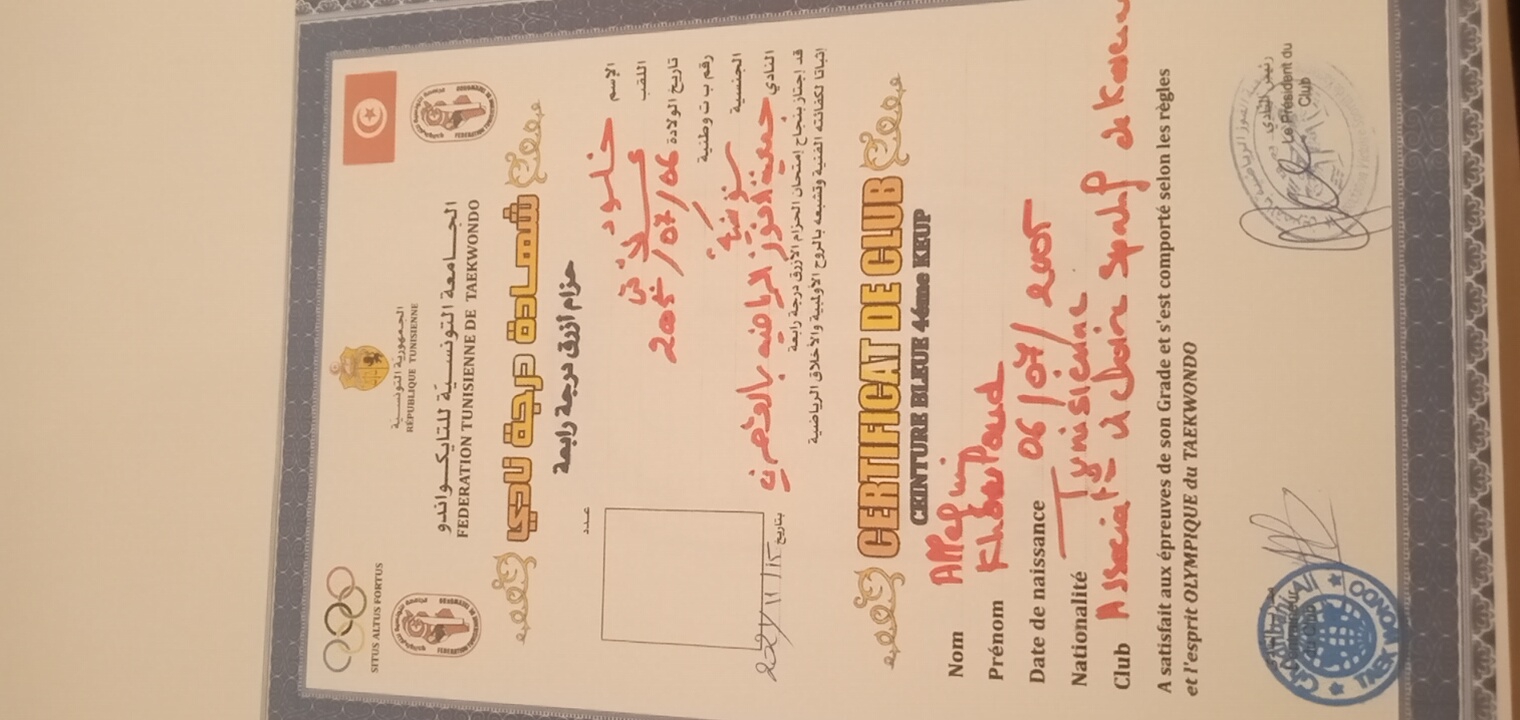 SITUS ALTUS FORTUS
الجمهورية التونسية
RÉPUBLIQUE TUNISIENNE
الجامعة التونسية للتايكواندو
FEDERATION TUNISIENNE DE TAEKWONDO
شهادة درجة نادي
حزام أزرق درجة رابعة
عدد
الإسم خلود
اللقب
تاريخ الولادة 06/07/2005
رقم ب ت وطنية
الجنسية تونسية
النادي جمعية الفوز الرياضية بالقصرين
قد إجتاز بنجاح إمتحان الحزام الأزرق درجة رابعة
إثباتا لكفائته الفنية وتشبعه بالروح الأولمبية والأخلاق الرياضية
بتاريخ
CERTIFICAT DE CLUB
CEINTURE BLEUE 4éme KEUP
Nom
Prénom
Date de naissance 06/07/2005
Nationalité Tunisienne
Club
A satisfait aux épreuves de son Grade et s'est comporté selon les règles
et l'esprit OLYMPIQUE du TAEKWONDO
رئيس النادي
Le Président du
Club
TAEKWONDO